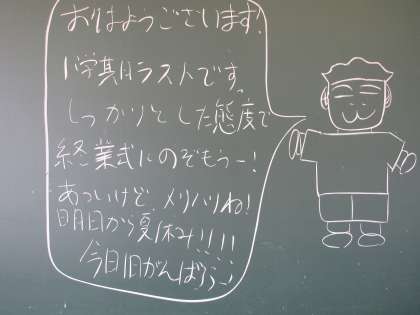 おはようございます!
1学期ラストです。
しっかりとした態度で
終業式にのぞもうー!
あついけど、メリハリね!
明日から夏休み!!!!
今日1日がんばろう!